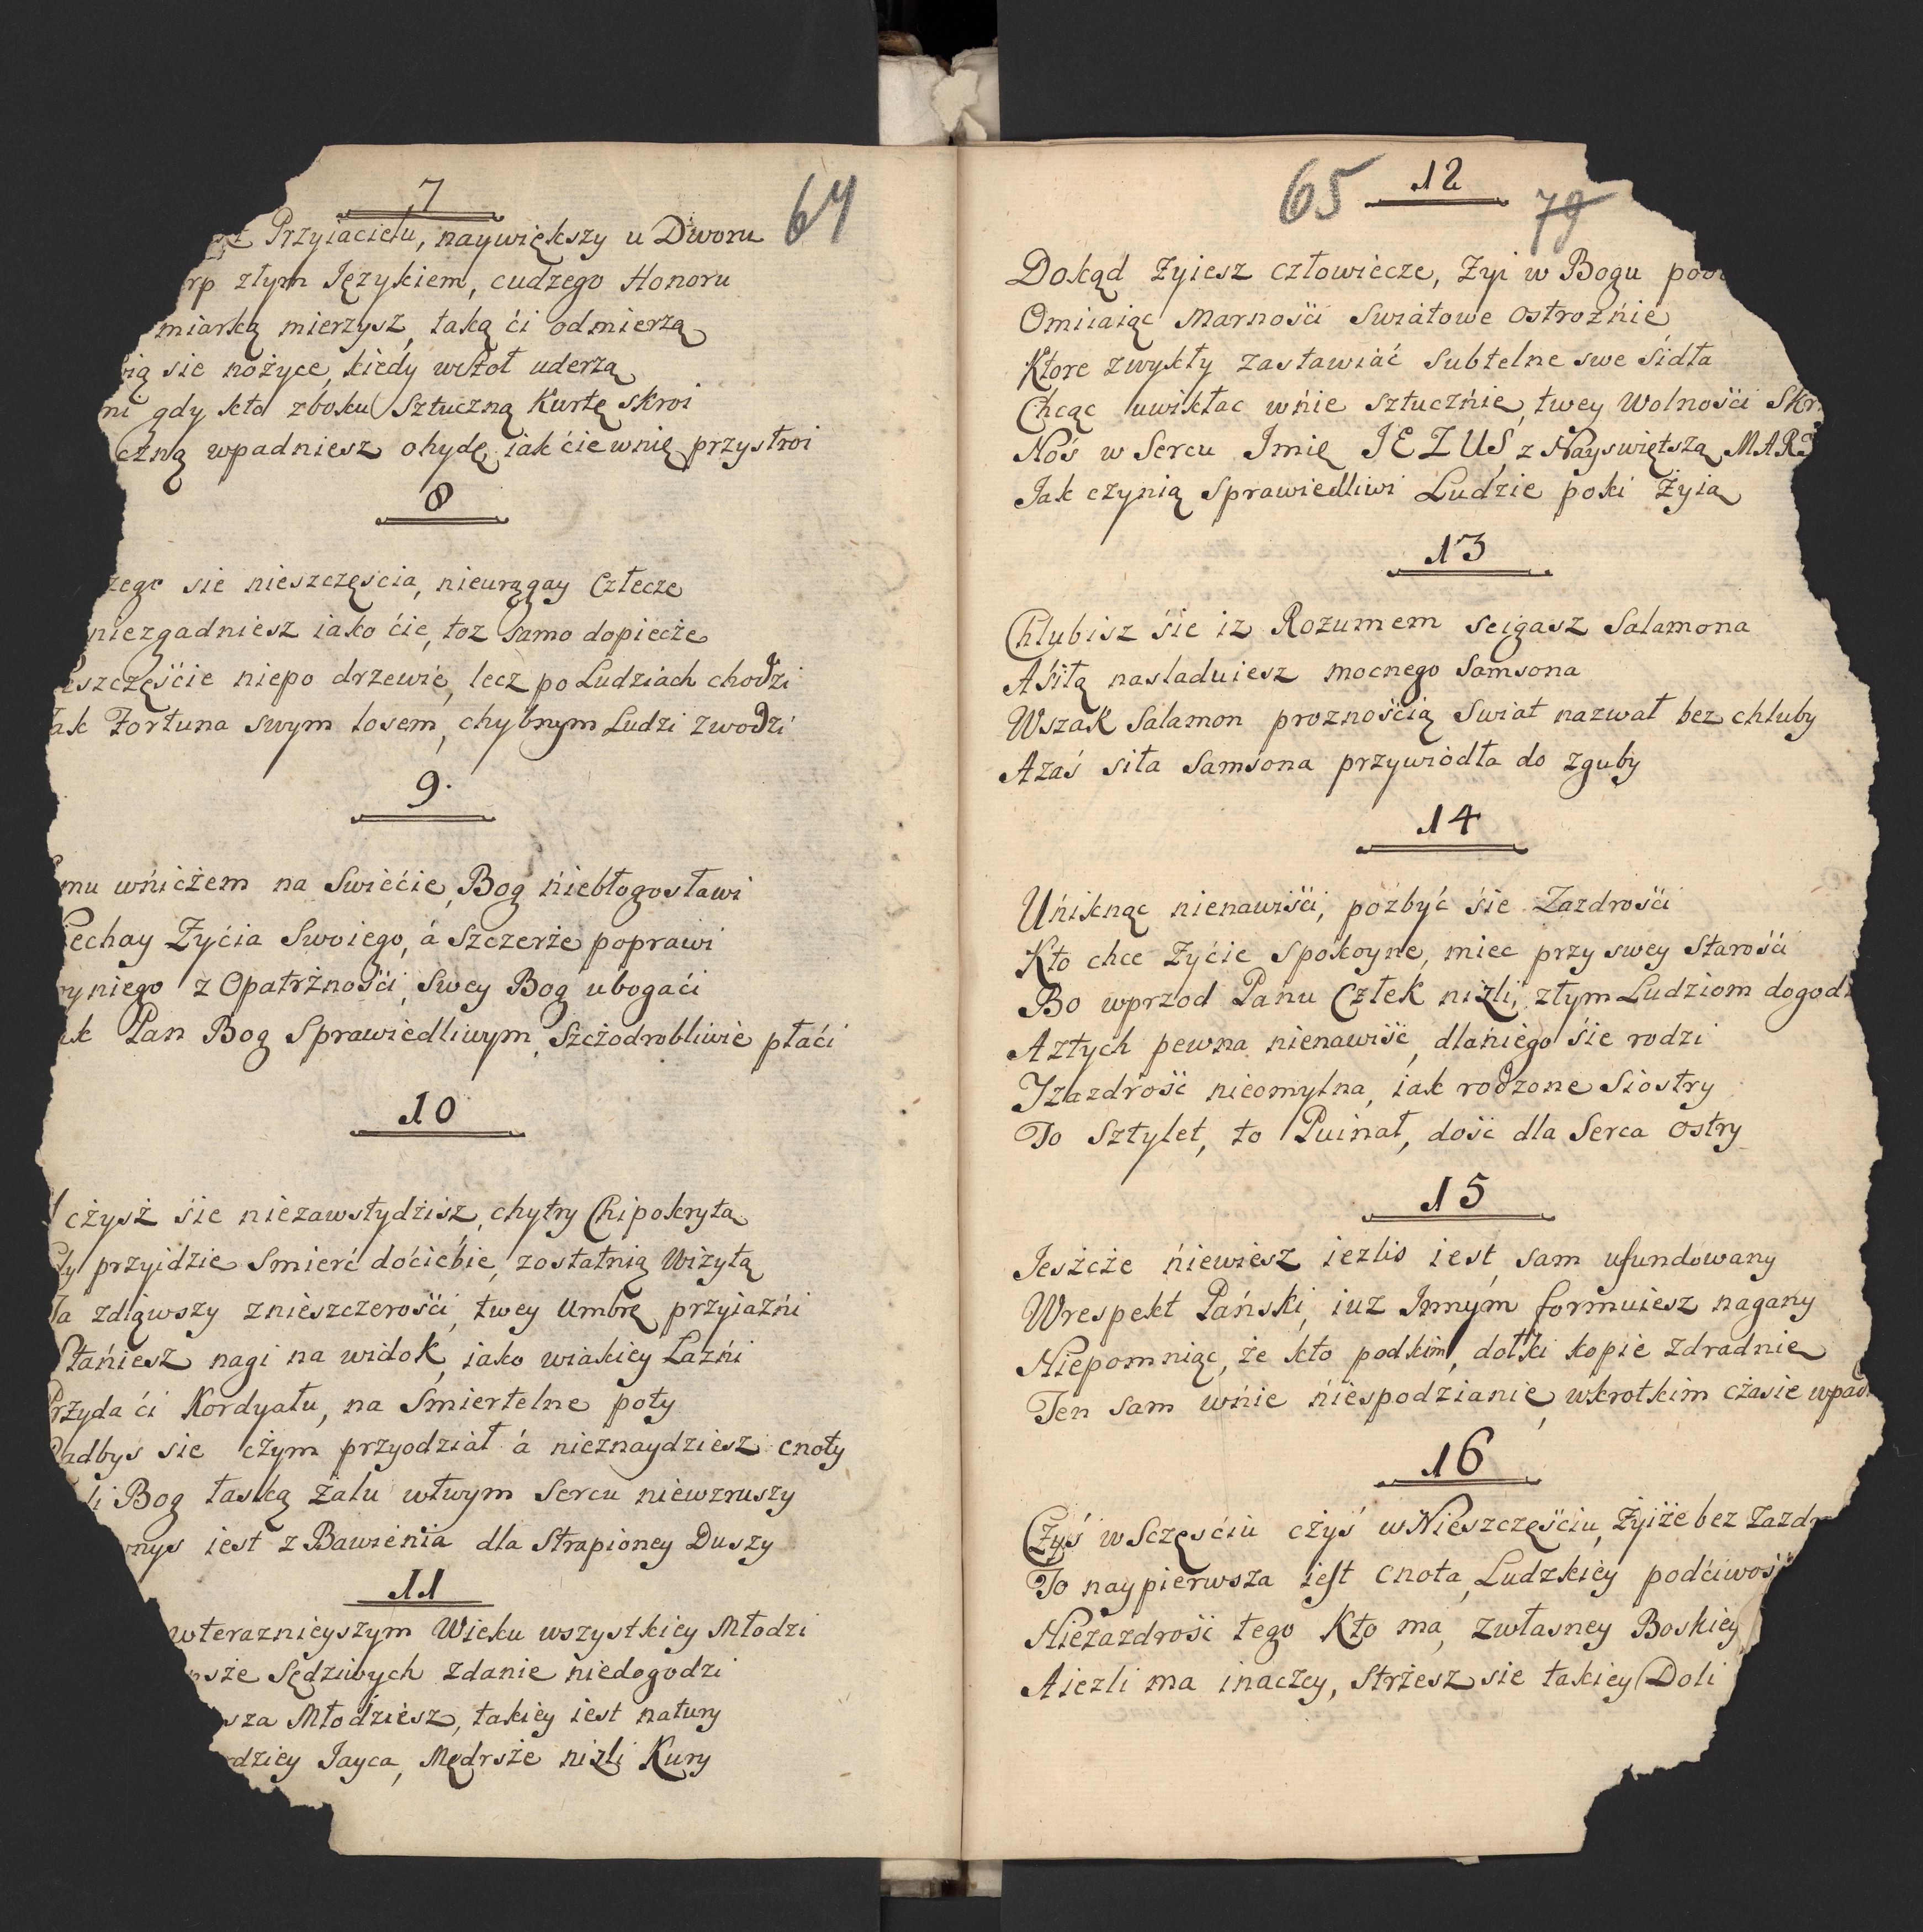 7
64
Przyiacielu, naywiększy u Dworu
złym Językiem, cudzego Honoru
miarką mierzysz, taką ći odmierzą
sie nożyce, kiedy wStoł uderzą
gdy kto zboku Sztuczną Kurtę skroi
wpadniesz ohydę, iak ćie wnię przystroi
8
sie nieszczęscia, nieurągay Człecze
niezgadniesz iako ćie, toz samo dopiecże
niepo drzewie, lecz po Ludziach chodzi
Fortuna swym losem, chybnym Ludzi zwodzi
9.
wnicżem na Swiećie, Bog niebłogosławi
Zyćia Swoiego, á Szczerże poprawi
z Opatrżnośći, Swey Bog ubogaći
Pan Bog Sprawiedliwym, Szcżodrobliwie płaći
10
cżysż sie niezawstydżisz, chytry Chipokryta
przyidzie Smierć doćiebie, zostatnią Wizytą
zdiąwszy znieszczerośći, twey Umbrę przyiaźni
nagi na widok, iako wiakiey Łaźni
Przyda ći Kordyału, na Smiertelne poty
sie cżym przyodział á nieznaydziesz cnoty
Bog łaską żalu wtwym Sercu niewzruszy
iest z Bawienia dla Strapioney Duszy
11
wteraznieyszym Wieku wszystkiey Młodzi
Sędziwych zdanie niedogodzi
Młodzież, takiey iest natury
Jayca, Mędrsże niżli Kury
65 12
79
Dokąd Zyiesz człowiecze, Zyi w Bogu
Omiiaiąc Marnośći Swiatowe Ostrożnie
Ktore zwykły zastawiać Subtelne swe Sidła
Chcąc uwikłac wńie sztucźnie, twey Wolnośći
Noś w Sercu Jmię JEZUS, z Nayswiętszą
Jak czynią Sprawiedliwi Ludzie poki Zyią
13
Chlubisz śie iz Rozumem scigasz Salamona
A siłą nasladuiesz mocnego Samsona
Wszak Salamon proznośćią Swiat nazwał bez chluby
Azaś siła Samsona przywiodła do zguby
14
Uniknąc nienawiśći, pozbyć śie Zazdrośći
Kto chce Zyćie Spokoyne, miec przy swey Starośći
Bo wprzod Panu Człek niżli, złym Ludziom
A złych pewna nienawiść, dlaniego śie rodzi
Jzazdrość nieomylna, iak rodzone Siostry
To Sztylet, to Puinał, dość dla Serca Ostry
15
Jeszcże niewiesz iezlis iest, sam ufundowany
Wrespekt Pański, iuz Jnnym formuiesz nagany
Niepomniąc, że kto podkim, dołki kopie zdradnie
Ten sam wńie niespodzianie, wkrotkim cżasie
16
Czyś w Sczęsćiu cżyś w Nieszczęśćiu, Zyiże bez
To naypierwsza iest Cnota, Ludzkiey
Niezazdrość tego Kto ma, zwłasney Boskiey
A iezli ma inaczey, Strżesz sie takiey Doli